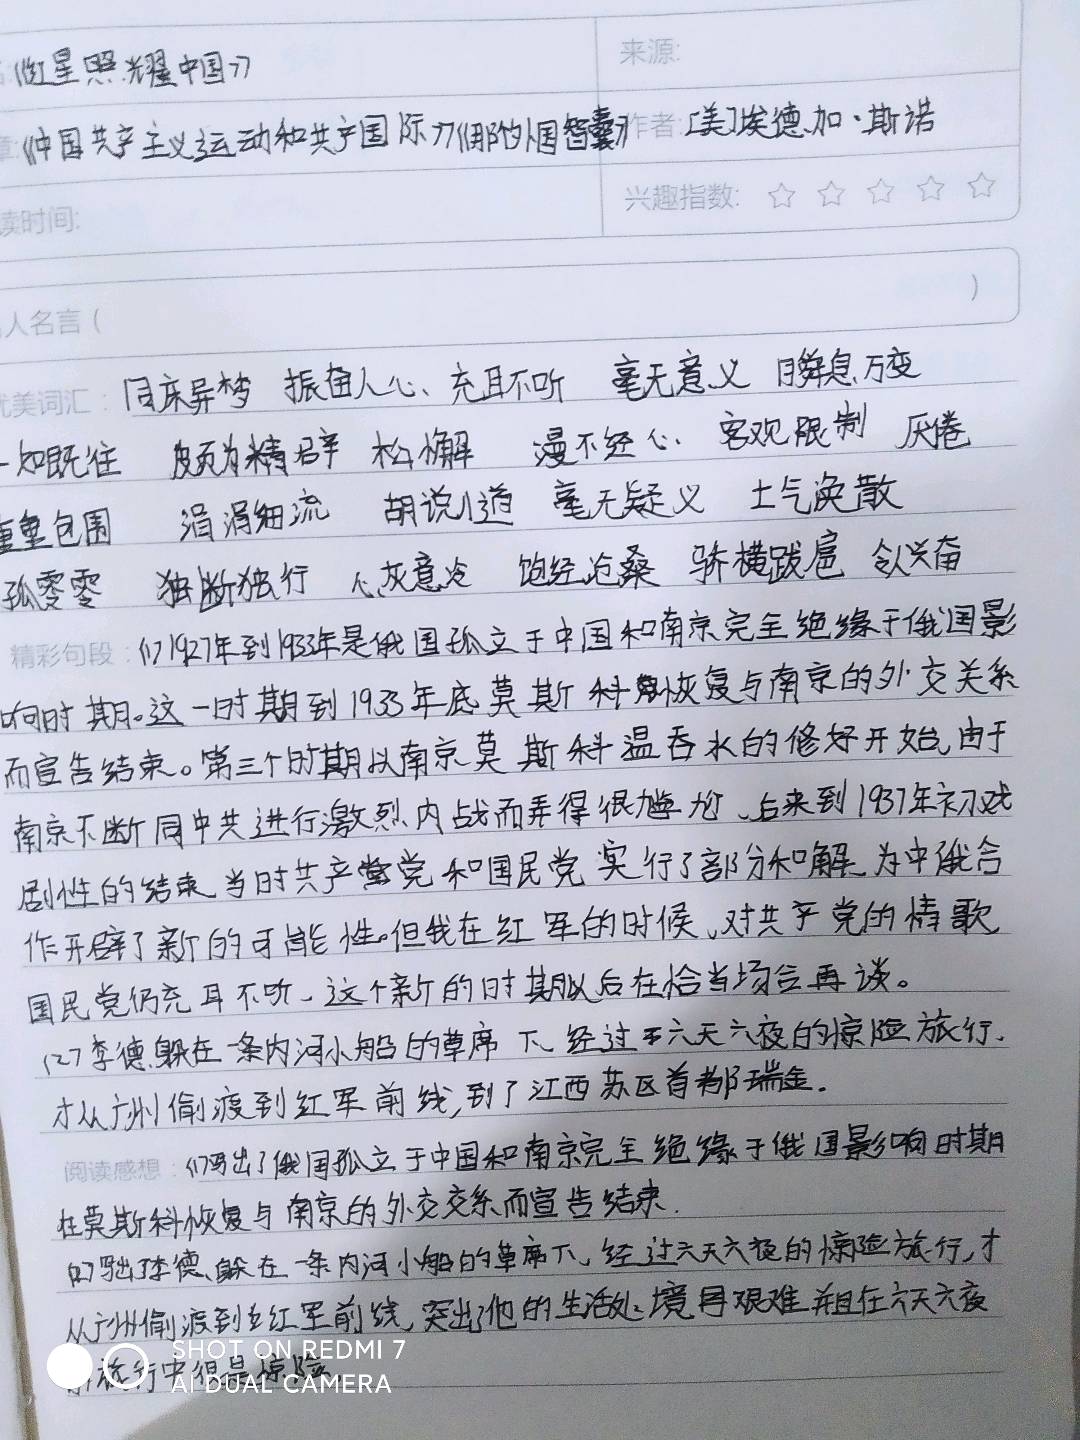 《红星照耀中国》
来源:
《中国共产主义运动和共产国际》《那个外国智囊》
作者: [美]埃德加·斯诺
读时间:
兴趣指数: ☆ ☆ ☆ ☆ ☆
人名言 ( )
优美词汇: 同床异梦 振奋人心、充耳不听 毫无意义 瞬息万变
一如既往 颇为精辟 松懈 漫不经心 客观限制 厌倦
重重包围 涓涓细流 胡说八道 毫无疑义 士气涣散
孤零零 独断独行 心灰意冷 饱经沧桑 骄横跋扈 令人兴奋
精彩句段: (1)1927年到1933年是俄国孤立于中国和南京完全绝缘于俄国影
响时期。这一时期到1933年底莫斯科恢复与南京的外交关系
而宣告结束。第三个时期以南京莫斯科温吞水的修好开始,由于
南京不断同中共进行激烈内战而弄得很尴尬、后来到1937年初戏
剧性的结束,当时共产党和国民党实行了部分和解,为中俄合
作开辟了新的可能性。但我在红军的时候、对共产党的情歌
国民党仍充耳不听、这个新的时期以后在恰当场合再谈。
(2)李德、躲在一条内河小船的草席下、经过六天六夜的惊险旅行、
才从广州偷渡到红军前线,到了江西苏区首都瑞金.
阅读感想: (1)写出了俄国孤立于中国和南京完全绝缘于俄国影响时期
在莫斯科恢复与南京的外交交系而宣告结束.
(2)写出了李德、躲在一条内河小船的草席下、经过六天六夜的惊险旅行,才
从广州偷渡到红军前线,突出了他的生活处境艰难并且在六天六夜
旅行中很是惊险
SHOT ON REDMI 7
AI DUAL CAMERA